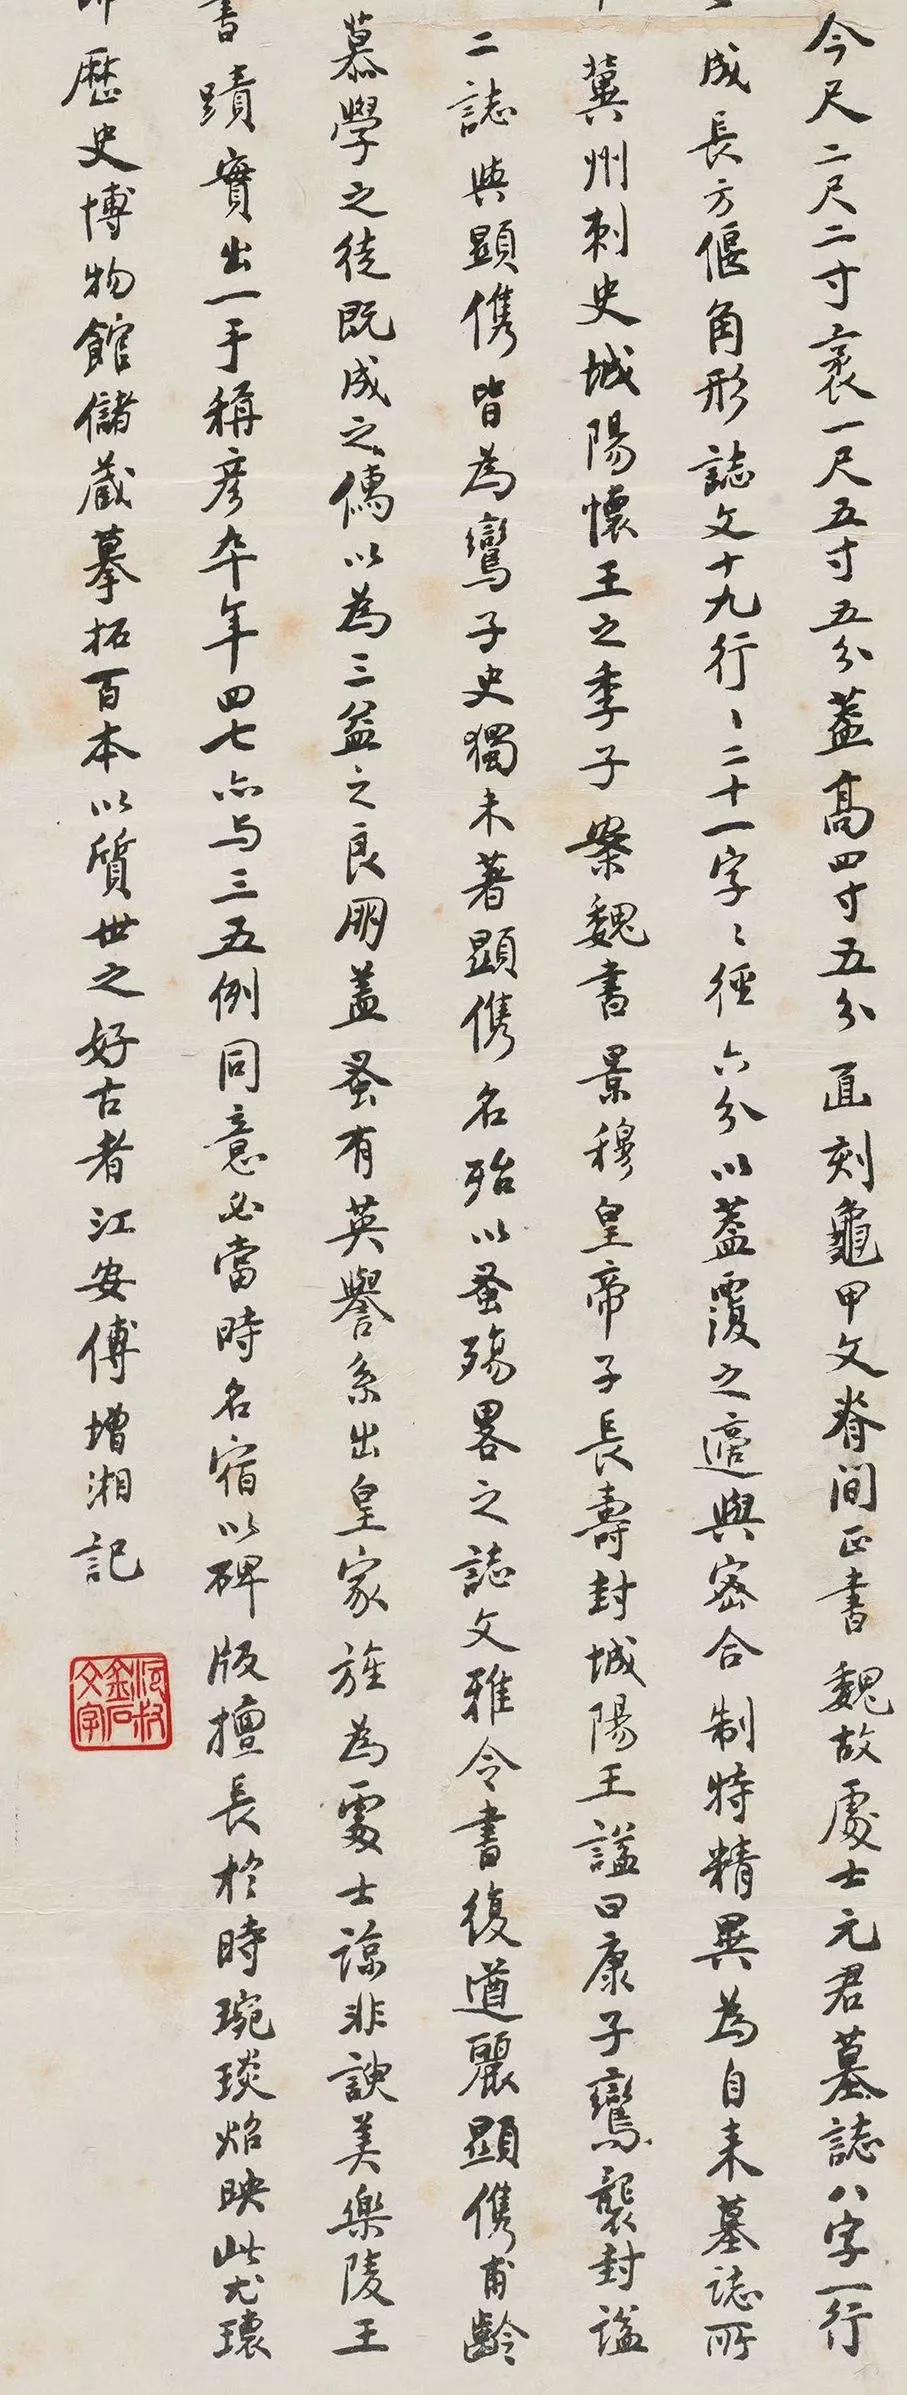 今尺二尺二寸袤一尺五寸五分蓋高四寸五分直刻龜甲文脊間正書魏故處士元君墓誌八字一行
成長方偃角形誌文十九行〻二十一字〻徑六分以蓋覆之適與密合制特精異為自来墓誌所
冀州刺史城陽懷王之季子案魏書景穆皇帝子長壽封城陽王謚曰康子鸞襲封謚
二誌與顯儁皆為鸞子史獨未著顯儁名殆以蚤殤畧之誌文雅令書復遒麗顯儁甫齡
慕學之徒既成之儔以為三益之良朋蓋蚤有英譽系出皇家旌為處士諒非諛美樂陵王
書蹟實出一手稱彦卒年四七亦与三五例同意必當時名宿以碑版擅長於時琬琰焰映此尤瓌
歷史博物館儲藏摹拓百本以質世之好古者江安傅增湘記
沅叔金石文字